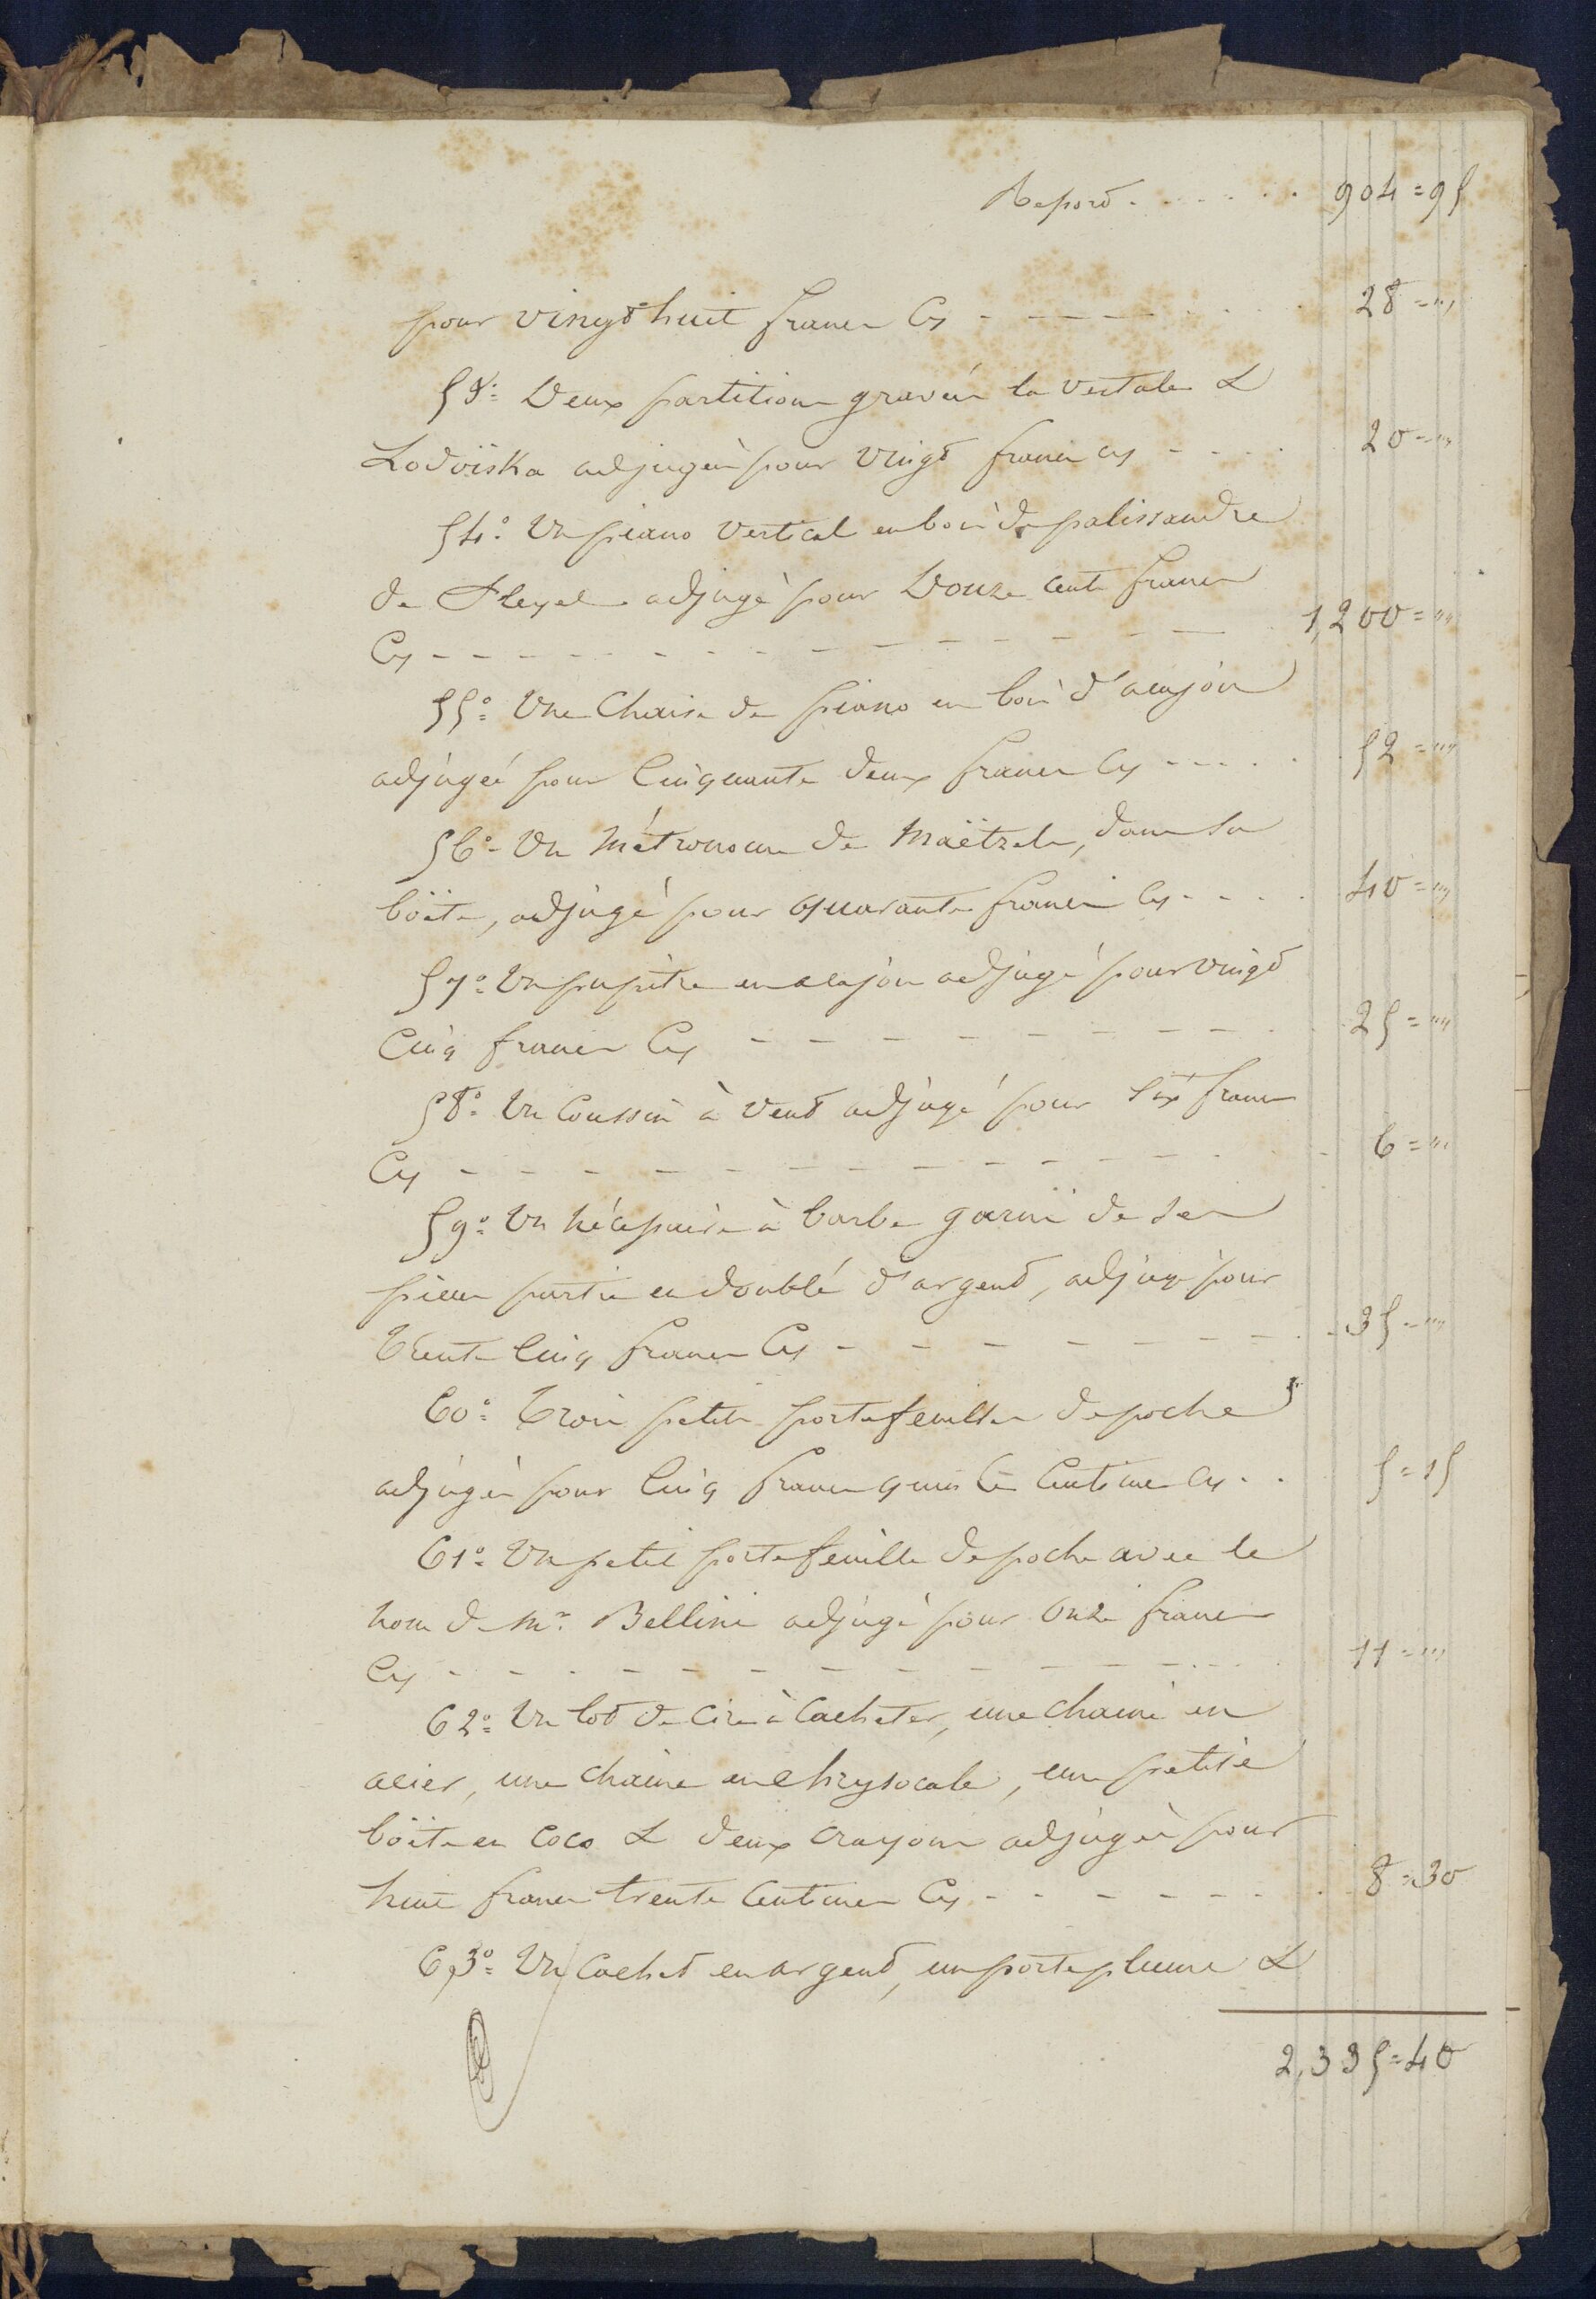 Report . . . . . . 904 = 95
pour vingt huit francs Cy - - - - - - - - 28 = "
53º. Deux partitions gravées la Vestale &
Lodoïska adjugées pour vingt francs Cy - - - - 20 = "
54º. Un piano vertical en bois de palissandre
de Pleyel adjugé pour Douze cents francs
Cy - - - - - - - - - - - - 1,200 = "
55º. Une Chaise de piano en bois d'acajou
adjugée pour Cinquante deux francs Cy - - - - 52 = "
56º. Un Métronome de Maëtzel, dans sa
boîte, adjugé pour quarante francs Cy - - - - 40 = "
57º. Un pupitre en acajou adjugé pour vingt
Cinq francs Cy - - - - - - - - 25 = "
58º. Un Coussin à vent adjugé pour six francs
Cy - - - - - - - - - - - - 6 = "
59º. Un nécessaire à barbe garni de ses
pièces partie en doublé d'argent, adjugé pour
trente Cinq francs Cy - - - - - - - - 35 = "
60º. Trois petits portefeuilles de poches
adjugés pour Cinq francs quinze Centimes Cy . . 5 = 15
61º. Un petit portefeuille de poche avec le
nom de Mr. Bellini adjugé pour Onze francs
Cy - - - - - - - - - - - - 11 = "
62º. Un lot de Cire à Cacheter, une chaine en
acier, une chaine en chrysocale, une petite
boîte en Coco & deux crayons adjugés pour
huit francs trente Centimes Cy - - - - - - 8 = 30
63º. Un Cachet en argent, un porte plume &
2,335 = 40